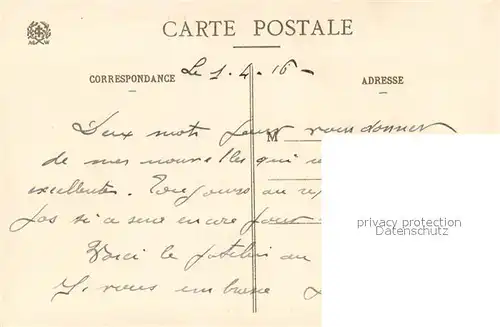 CARTE POSTALE
Le 1. 4. 16 -
CORRESPONDANCE
ADRESSE
Deux mots pour vous donner
M
de mes nouvelles qui
excellentes. Toujours au
pas si a encore pour
privacy protection
Datenschutz
Voici le au
Je vous embrasse